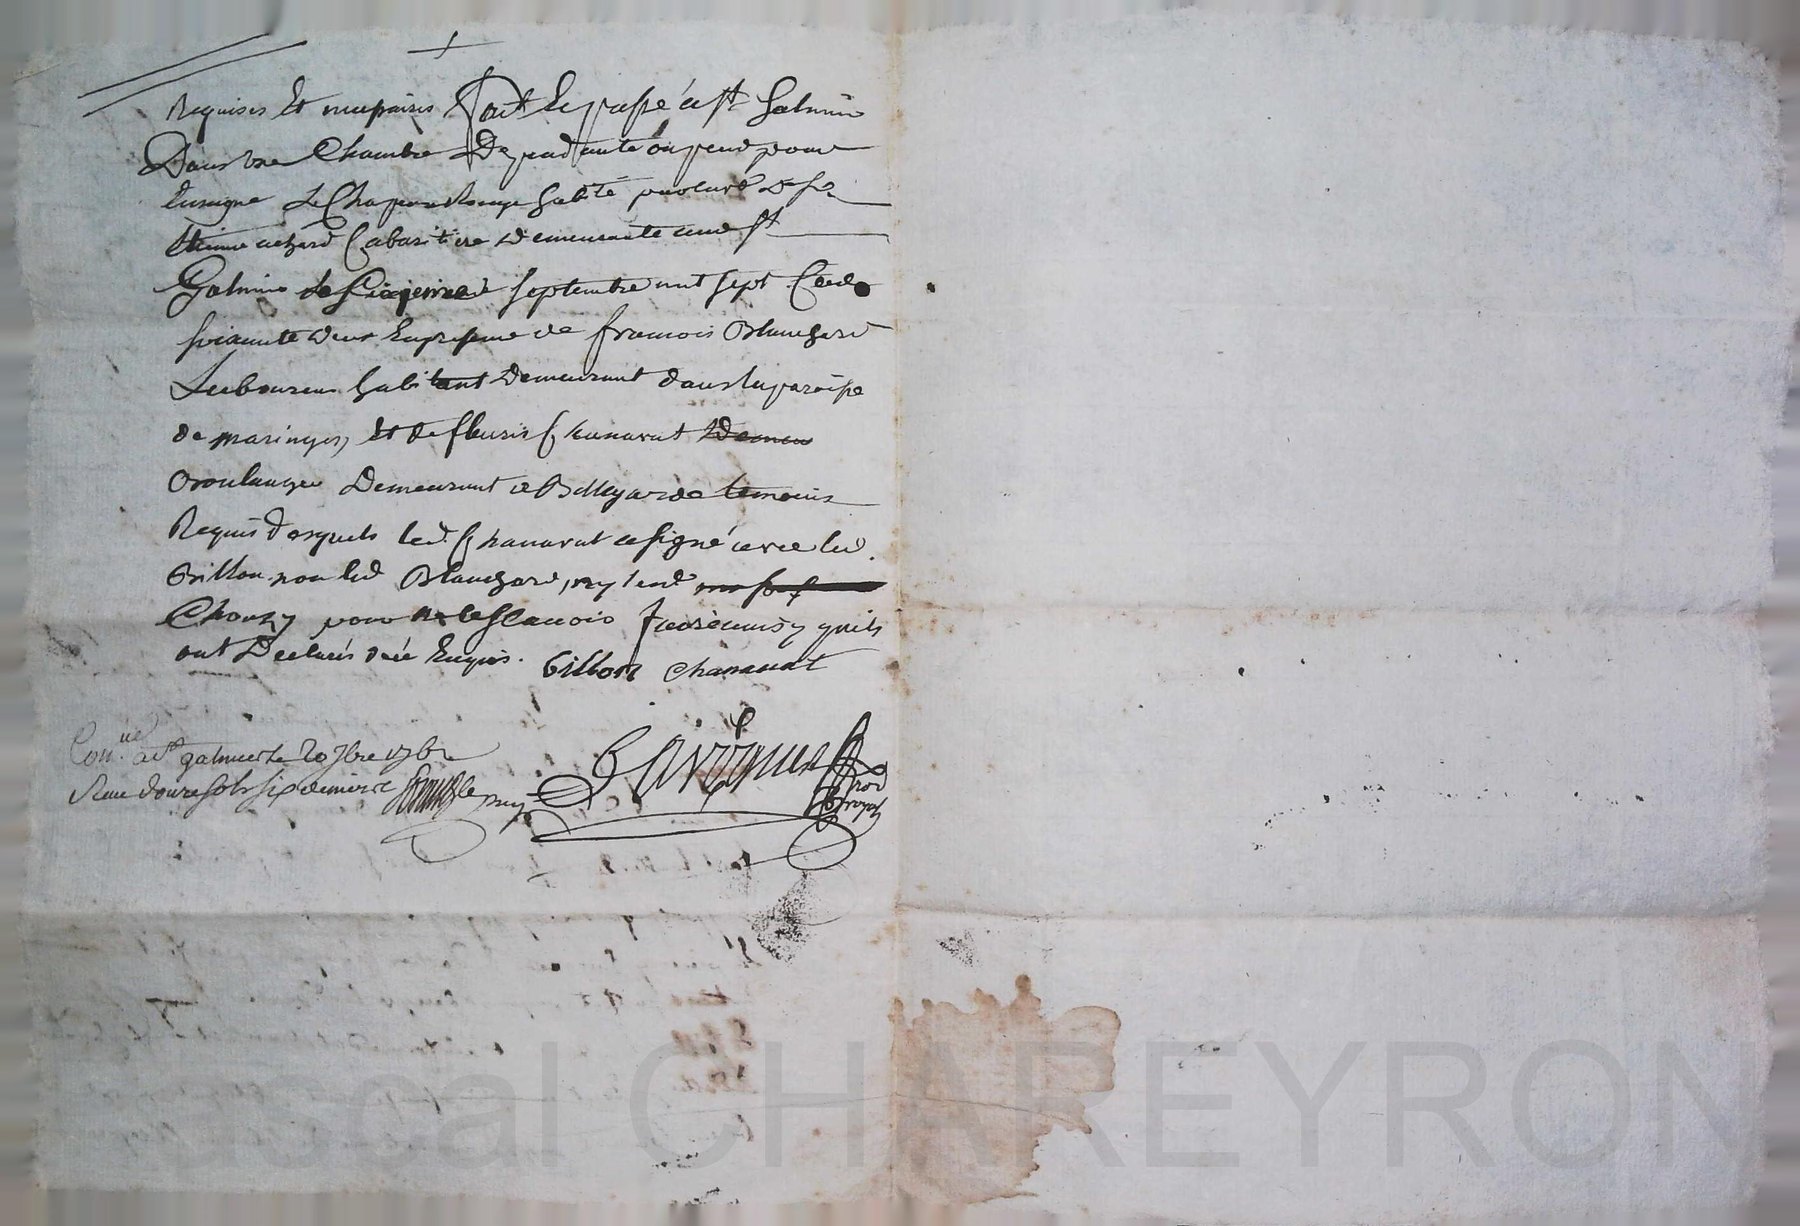 Requises Et necessaires fait Et passé a st Galmier
Dans une Chambre Dependante ou pend pour
Enseigne Le Chapeau Rouge habité par
Etienne achard Cabaretier Demeurante aud st
Galmier le septembre mil sept Cent
soixante deux En presence de francois Blanchard
Laboureur habitant Demeurant dans la paroisse
de maringes, Et de fleuris Chanavat
Boulanger Demeurant a Bellegarde temoins
Requis desquels led. Chanavat a signé avec led.
Grillon non led Blanchard, ny lad
Chouzy pour ne le scavoir faire ainsy quils
ont Declarés de ce Enquis. Grillon Chanavat
Con.lé a st galmier le 20 7bre 1762
Recu douze sols six deniers
not
royal
Pascal CHAREYRON